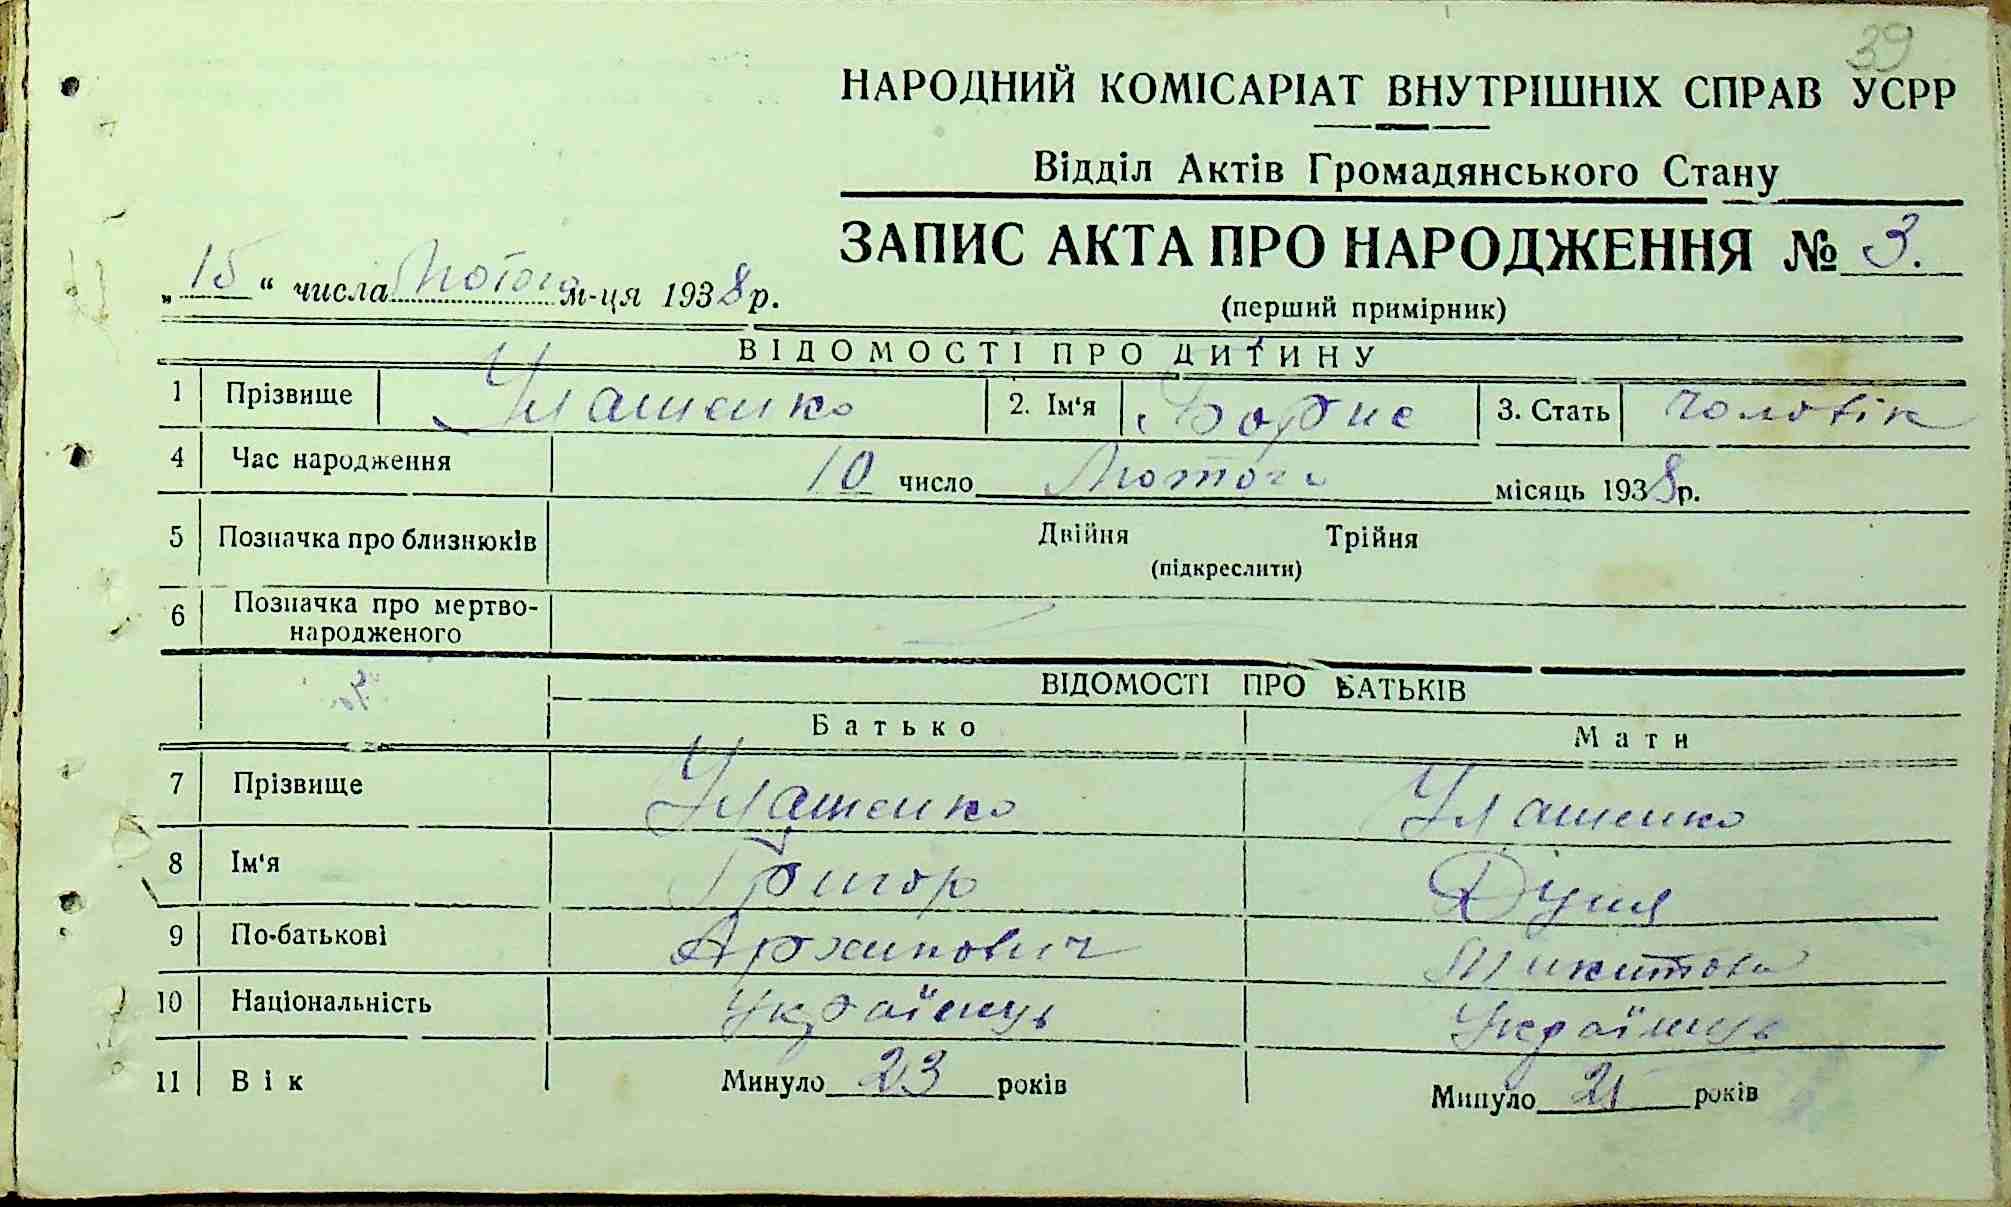 39
НАРОДНИЙ КОМІСАРІАТ ВНУТРІШНІХ СПРАВ УСРР
Відділ Актів Громадянського Стану
ЗАПИС АКТА ПРО НАРОДЖЕННЯ № 3.
„15“ числа Лютого м-ця 1938 р.
(перший примірник)
ВІДОМОСТІ ПРО ДИТИНУ
1 Прізвище Улашенко 2. Ім‘я Борис 3. Стать чоловік
4 Час народження 10 число Лютого місяць 1938 р.
5 Позначка про близнюків Двійня Трійня
(підкреслити)
6 Позначка про мертво-
народженого
ВІДОМОСТІ ПРО БАТЬКІВ
Батько Мати
7 Прізвище Улашенко Улашенко
8 Ім‘я Григор Дуня
9 По-батькові Архипович Микитова
10 Національність Українець Українець
11 Вік Минуло 23 років Минуло 21 років